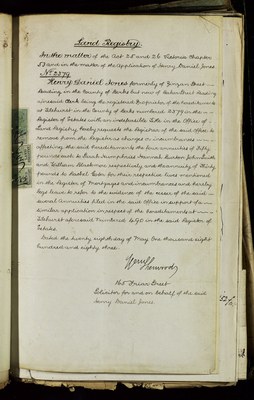 Land Registry.
In the matter of the Act 25 and 26 Victoria Chapter
53 and in the matter of the Application of Henry Daniel Jones
No 2379
Henry Daniel Jones formerly of Gunyer Street
Reading in the County of Berks but now of Baker Street Reading
aforesaid Clerk being the registered Proprietor of the hereditaments
at Tilehurst in the County of Berks numbered 2379 in the
Register of Estates with an indefeasible title in the Office of
Land Registry hereby requests the Registrar of the said Office to
remove from the Register as charges or incumbrances
affecting the said hereditaments the four annuities of Fifty
pounds each to Sarah Humphries Hannah Burton John Smith
and William Blackman respectively and the annuity of Thirty
pounds to Rachel for their respective lives mentioned
in the Register of Mortgages and incumbrances and hereby
begs leave to refer to the evidence of the cesser of the said
several Annuities filed in the said Office in support of a
similar application in respect of the hereditaments at
Tilehurst aforesaid Numbered 490 in the said Register of
Estates.
Dated the twenty eighth day of May One thousand eight
hundred and eighty three.
Henwood
165 Friar Street
Solicitor for and on behalf of the said
Henry Daniel Jones